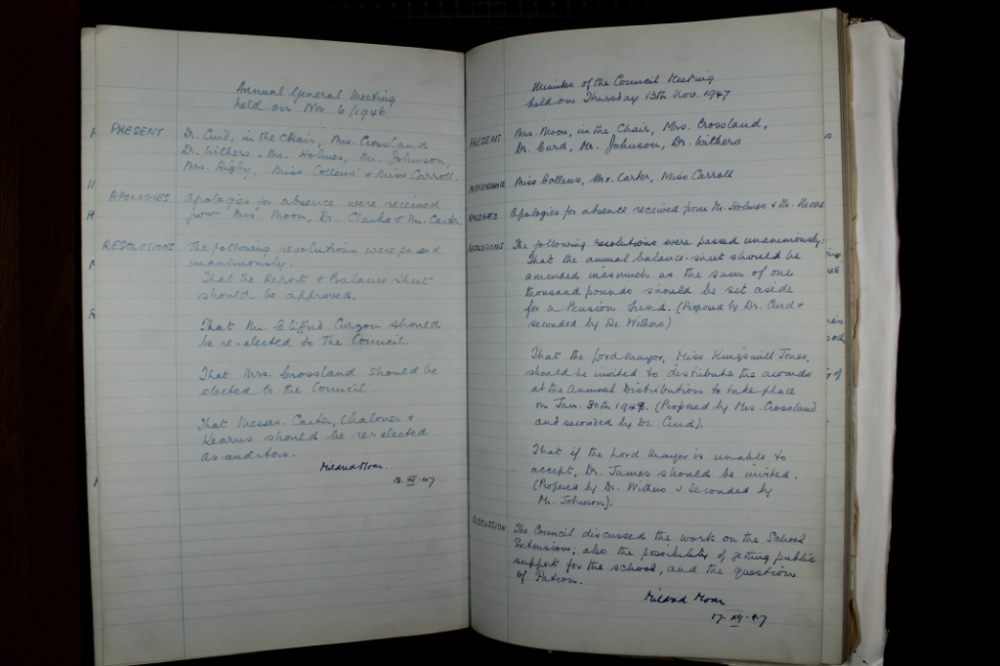 Annual General Meeting
held on Nov. 6/1946
PRESENT Dr. Curd, in the Chair, Mrs. Crossland
Dr. Withers, Mr. Holmes, Mr. Johnson,
Mrs. Rigby, Miss Collens & Miss Carroll.
APOLOGIES Apologies for absence were received
from Mrs. Moon, Dr. Clarke & Mr. Carter.
RESOLUTIONS The following resolutions were passed
unanimously:
That the Report & Balance Sheet
should be approved.
That Mr. Clifford Curzon should
be re-elected to the Council.
That Mrs. Crossland should be
elected to the Council.
That Messrs. Carter, Chaloner &
Kearns should be re-elected
as auditors.
Mildred Moon.
Minutes of the Council Meeting
held on Thursday 13th Nov. 1947
PRESENT Mrs. Moon, in the Chair, Mrs. Crossland,
Dr. Curd, Mr. Johnson, Dr. Withers
IN ATTENDANCE Miss Collens, Mr. Carter, Miss Carroll
APOLOGIES Apologies for absence received from Mr. Holmes & Mr. Moore
RESOLUTIONS The following resolutions were passed unanimously:
That the annual balance-sheet should be
amended inasmuch as the sum of one
thousand pounds should be set aside
for a Pension Fund. (Proposed by Dr. Curd &
seconded by Dr. Withers)
That the Lord Mayor, Miss Kingsmill Jones,
should be invited to distribute the awards
at the Annual Distributions to take place
on Jan. 30th 1948. (Proposed by Mrs. Crossland
and seconded by Dr. Curd).
That if the Lord Mayor is unable to
accept, Dr. James should be invited.
(Proposed by Dr. Withers & seconded by
Mr. Johnson).
DISCUSSION The Council discussed the work on the School
Extension; also the possibility of getting public
support for the school, and the question
of Patron.
Mildred Moon
17. XII. 47